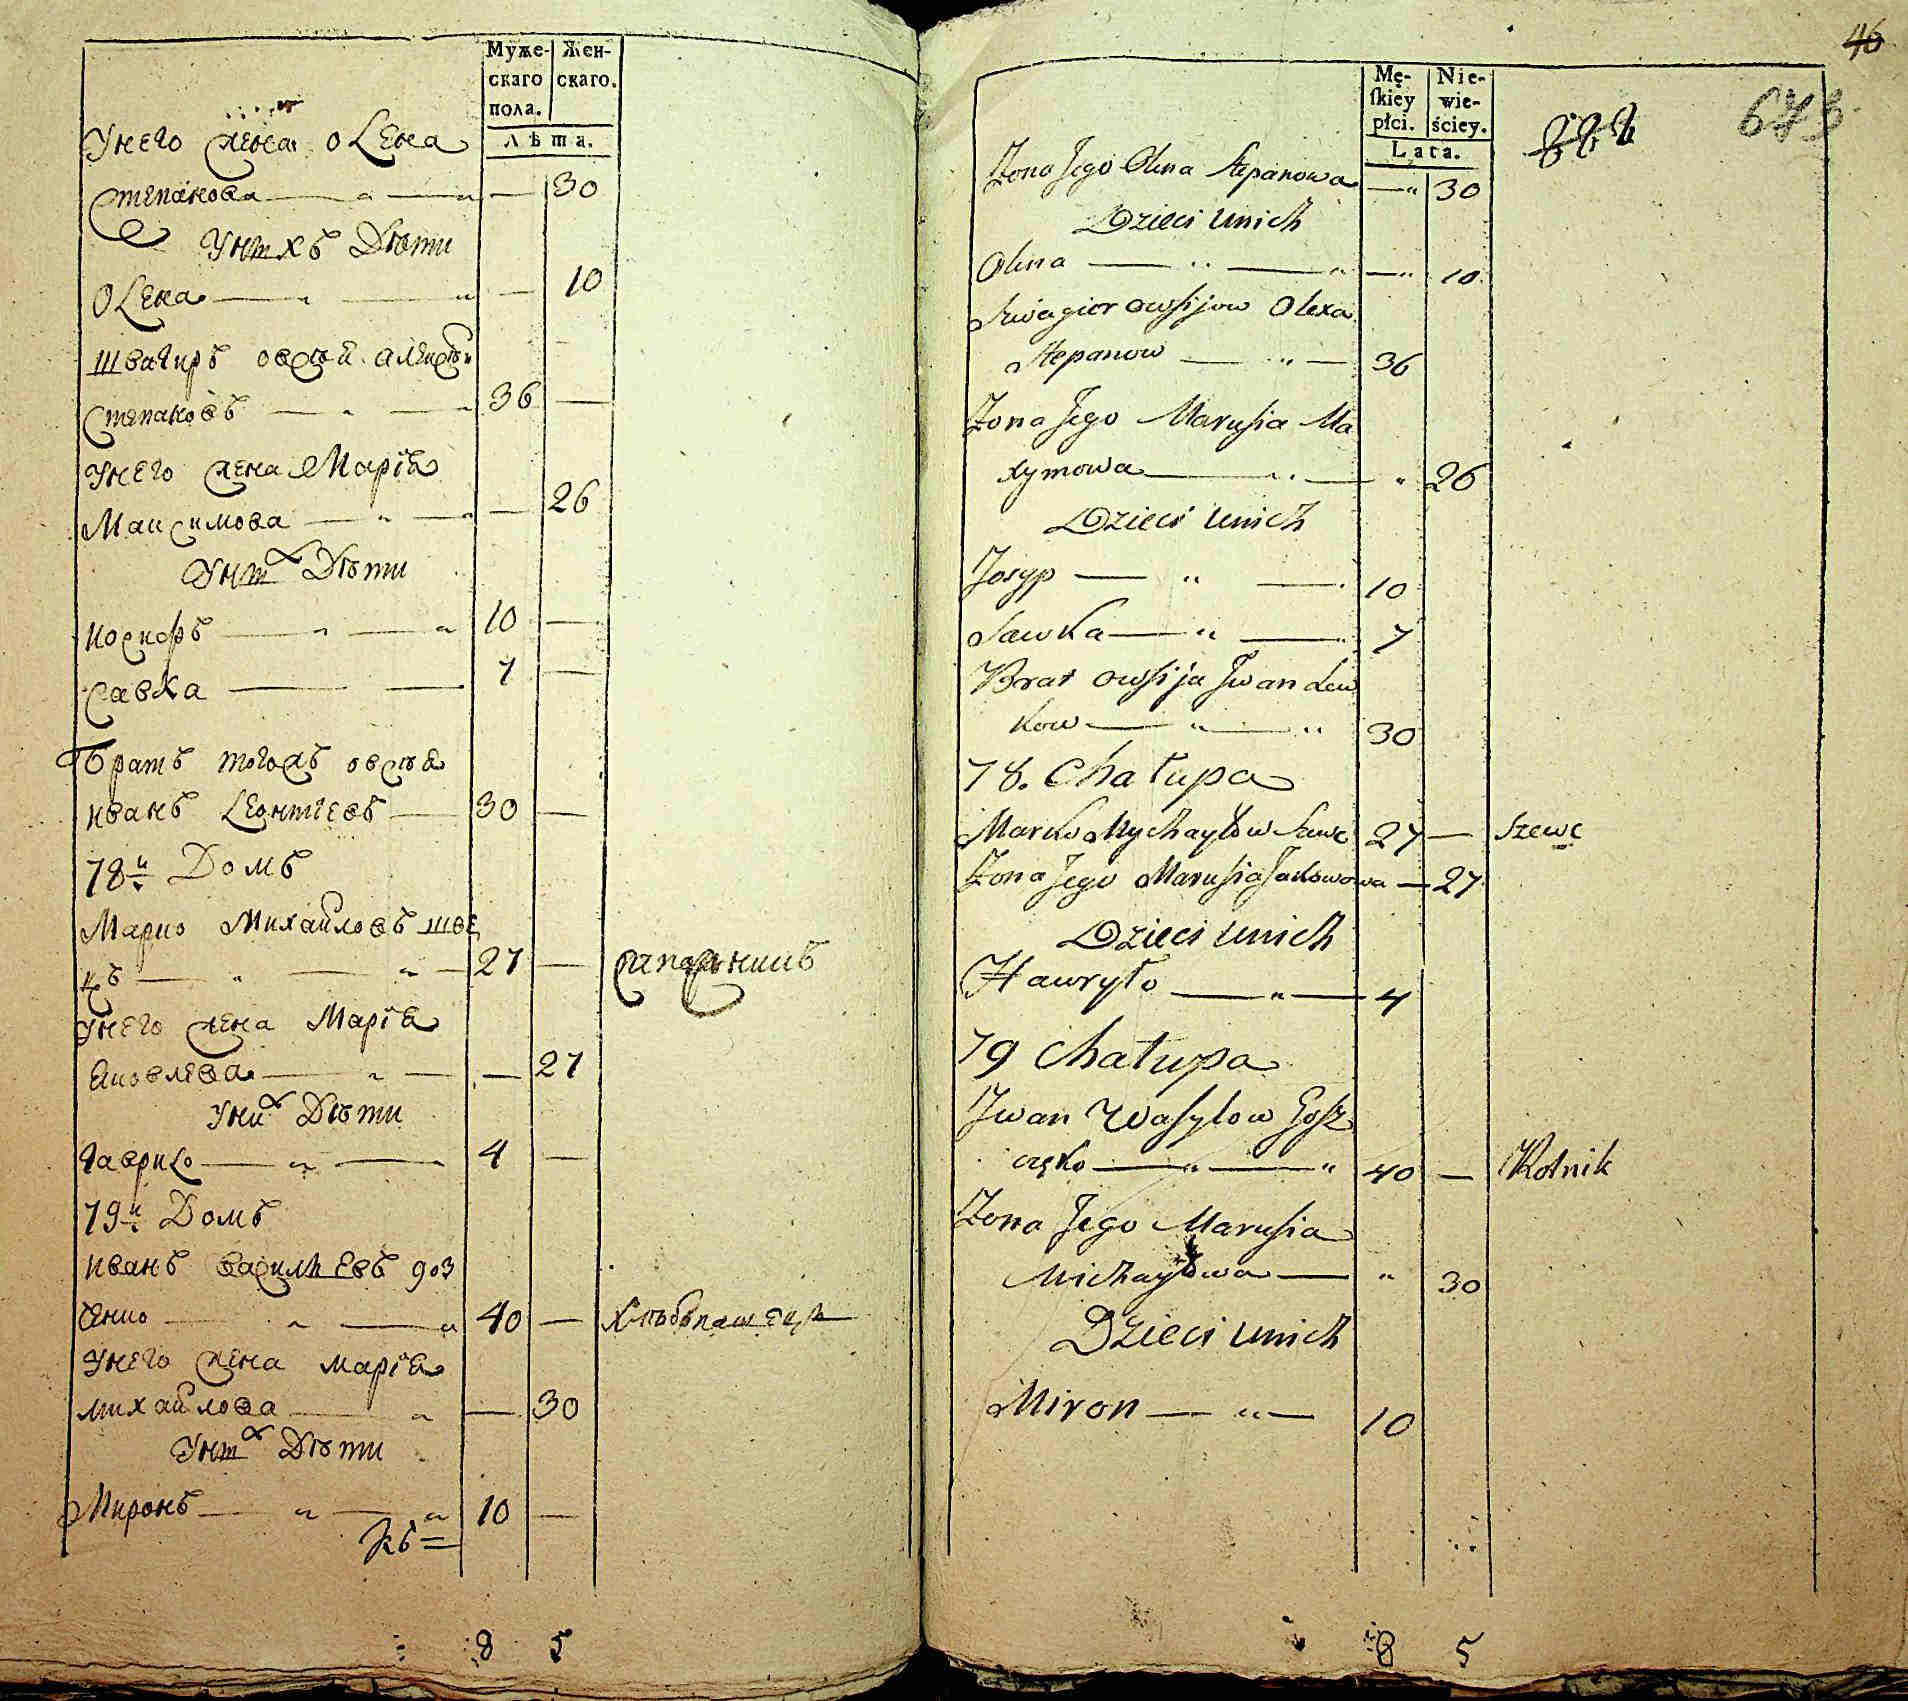 Муже-
скаго
пола.
Жен-
скаго.
Лѣта.
Унего жена оLена
Степанова — „ — „ — 30
Унихъ Дѣти
ОLена — „ — „ — 10
Швагиръ овсѣй
Степановъ — „ — „ 36 —
Унего жена Марія
Максимова — „ — „ — 26
Уних Дѣти
Иосифъ — „ — „ 10 —
Савка — — 7 —
Братъ тогожъ овсѣя
иванъ Lеонтіевъ — 30 —
78й Домъ
Марко Михайловъ шве
цъ — „ — „ — 27 —
Унего жена Марія
Яковлева — „ — — 27
Уних Дѣти
Гаврило — „ — 4 —
79й Домъ
иванъ василиевъ гоз
Унего жена марія
михайлова — „ — 30
Уних Дѣти
Миронъ — „ — „ 10 —
8 5
46
673
Mę-
ſkiey
płci.
Nie-
wie-
ściey.
Lata.
Żona Jego Olena Stepanowa — „ 30
Dzieci unich
Olena — „ — „ — „ 10
Szwagier owsijow Olexa
Stepanow — „ — 36
Żona Jego Marusia Ma
xymowa — „ — „ 26
Dzieci unich
Josyp — „ — 10
Sawka — „ — 7
Brat owsija Jwan Lew
kow — „ — „ 30
78. Chałupa
Marko Mychayłow Szewc 27 — Szewc
Żona Jego Marusia Jakowowa — 27
Dzieci unich
Hawryło — „ — 4
79 Chałupa
Jwan Wasylow
— „ — „ 40 — Rolnik
Żona Jego Marusia
Michayłowa — „ 30
Dzieci unich
Miron — „ — 10
8 5